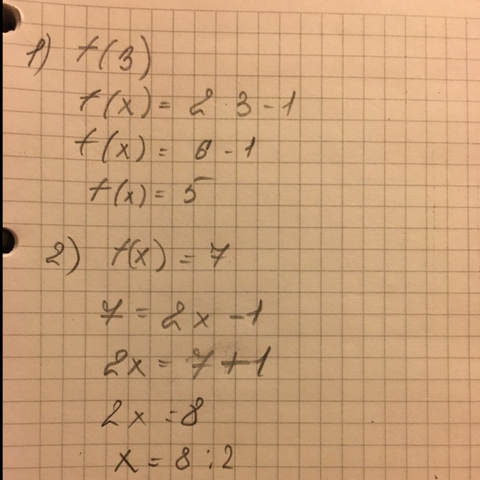 1) f(3)
f(x) = 2 · 3 - 1
f(x) = 6 - 1
f(x) = 5
2) f(x) = 7
7 = 2x - 1
2x = 7 + 1
2x = 8
x = 8 : 2